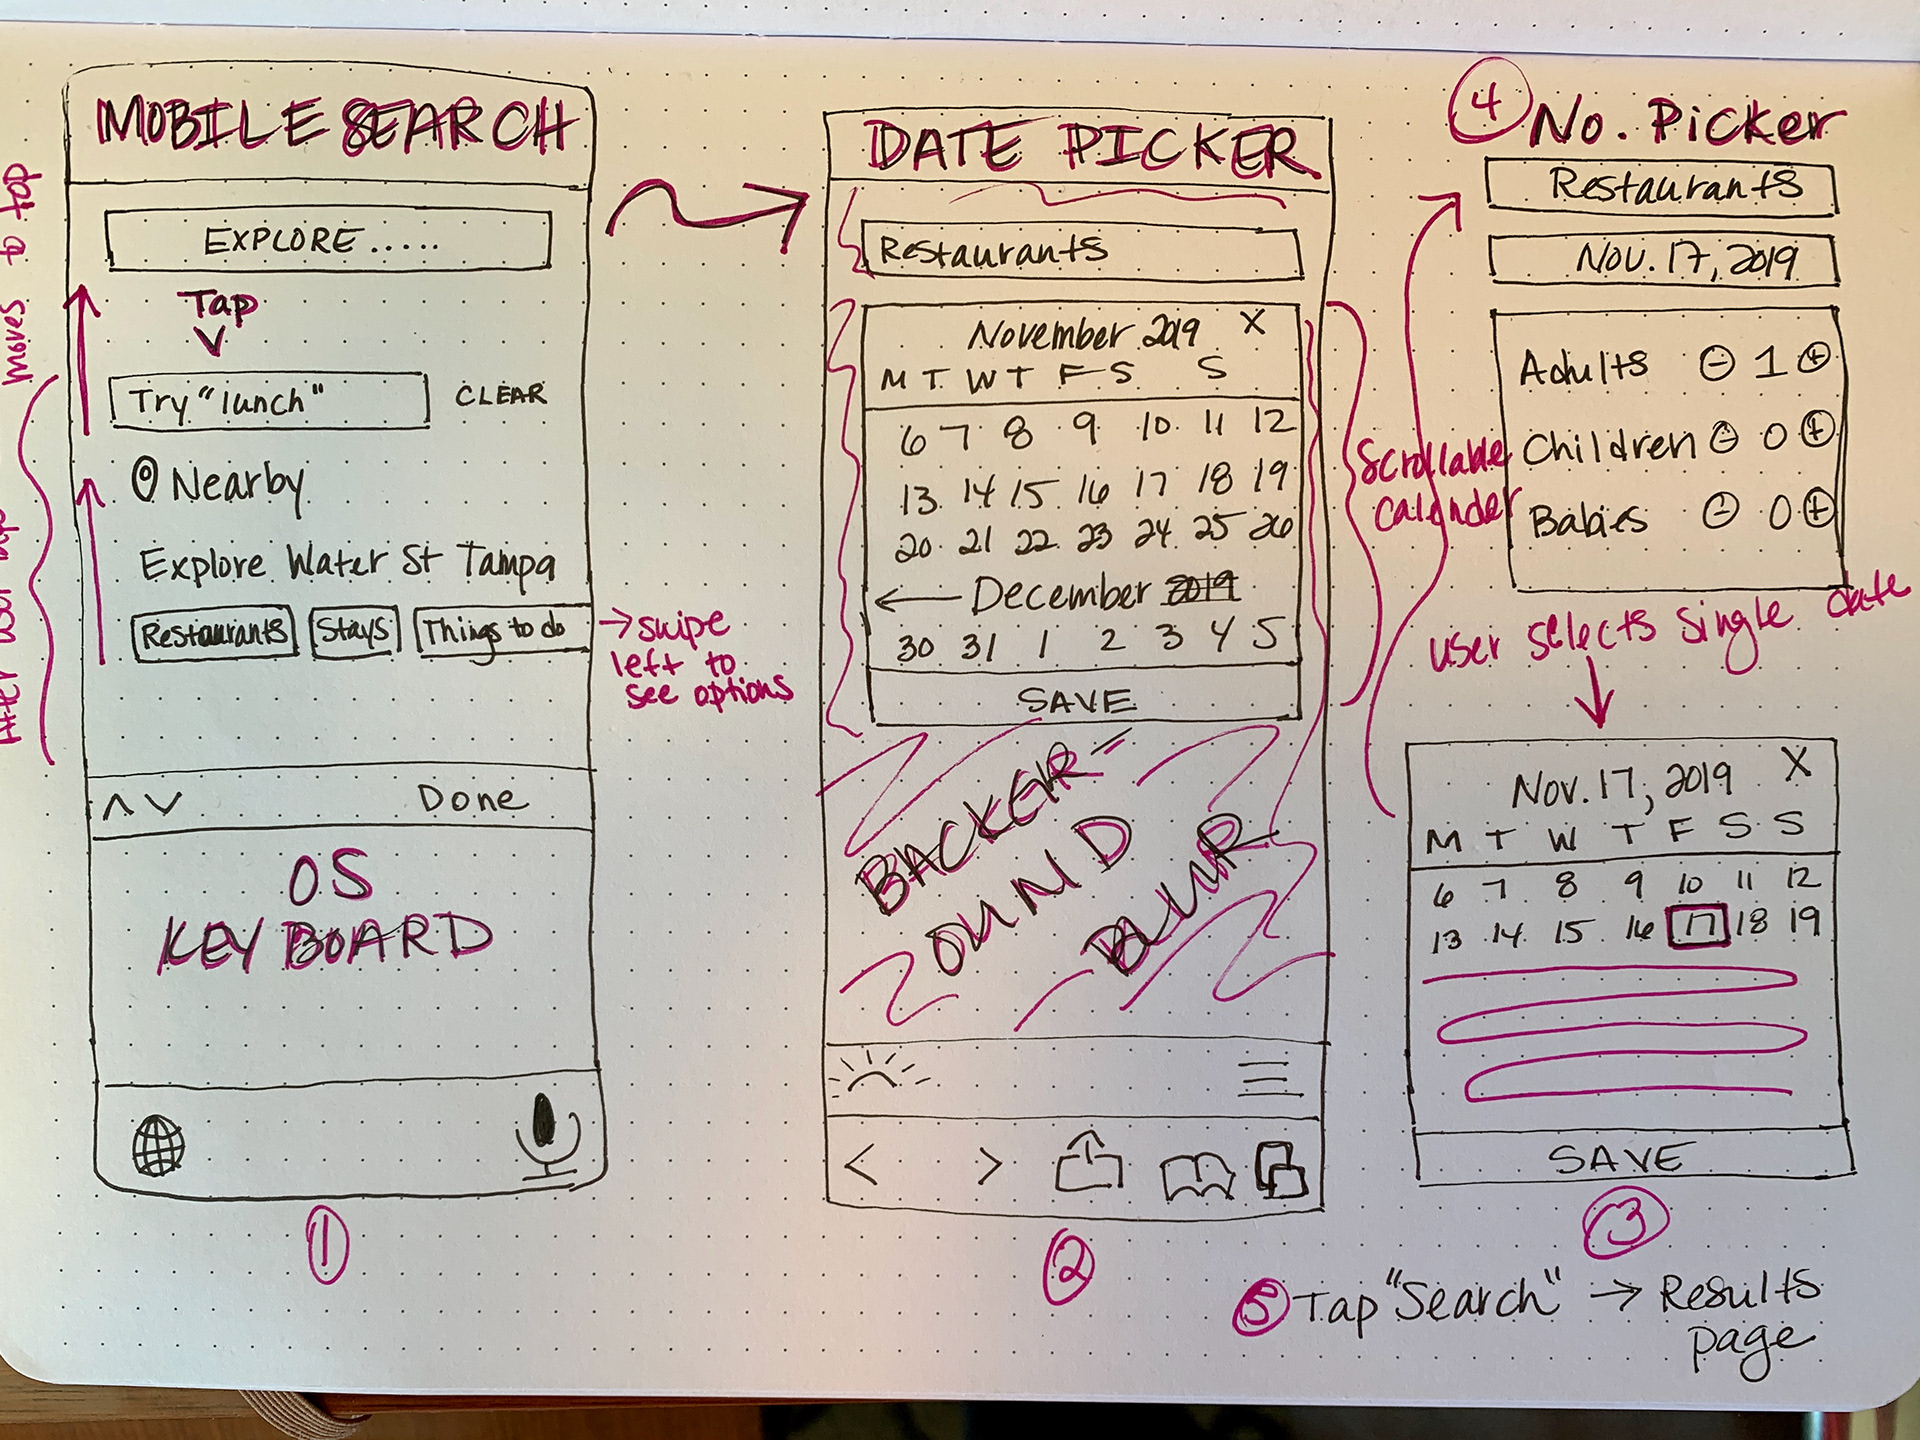 MOBILE SEARCH
EXPLORE.....
Tap
Try "lunch" CLEAR
Nearby
Explore Water St Tampa
Restaurants Stays Things to do
→ swipe
left to
see options
moves to top
After user
Done
OS
KEYBOARD
1
DATE PICKER
Restaurants
November 2019 X
M T W T F S S
6 7 8 9 10 11 12
13 14 15 16 17 18 19
20 21 22 23 24 25 26
← December 2019
30 31 1 2 3 4 5
SAVE
Scrollable
calender
BACKGR-
OUND
BLUR
2
4 No. Picker
Restaurants
Nov. 17, 2019
Adults - 1 +
Children - 0 +
Babies - 0 +
user selects single date
Nov. 17, 2019 X
M T W T F S S
6 7 8 9 10 11 12
13 14 15 16 17 18 19
SAVE
3
5 Tap "Search" → Results
page